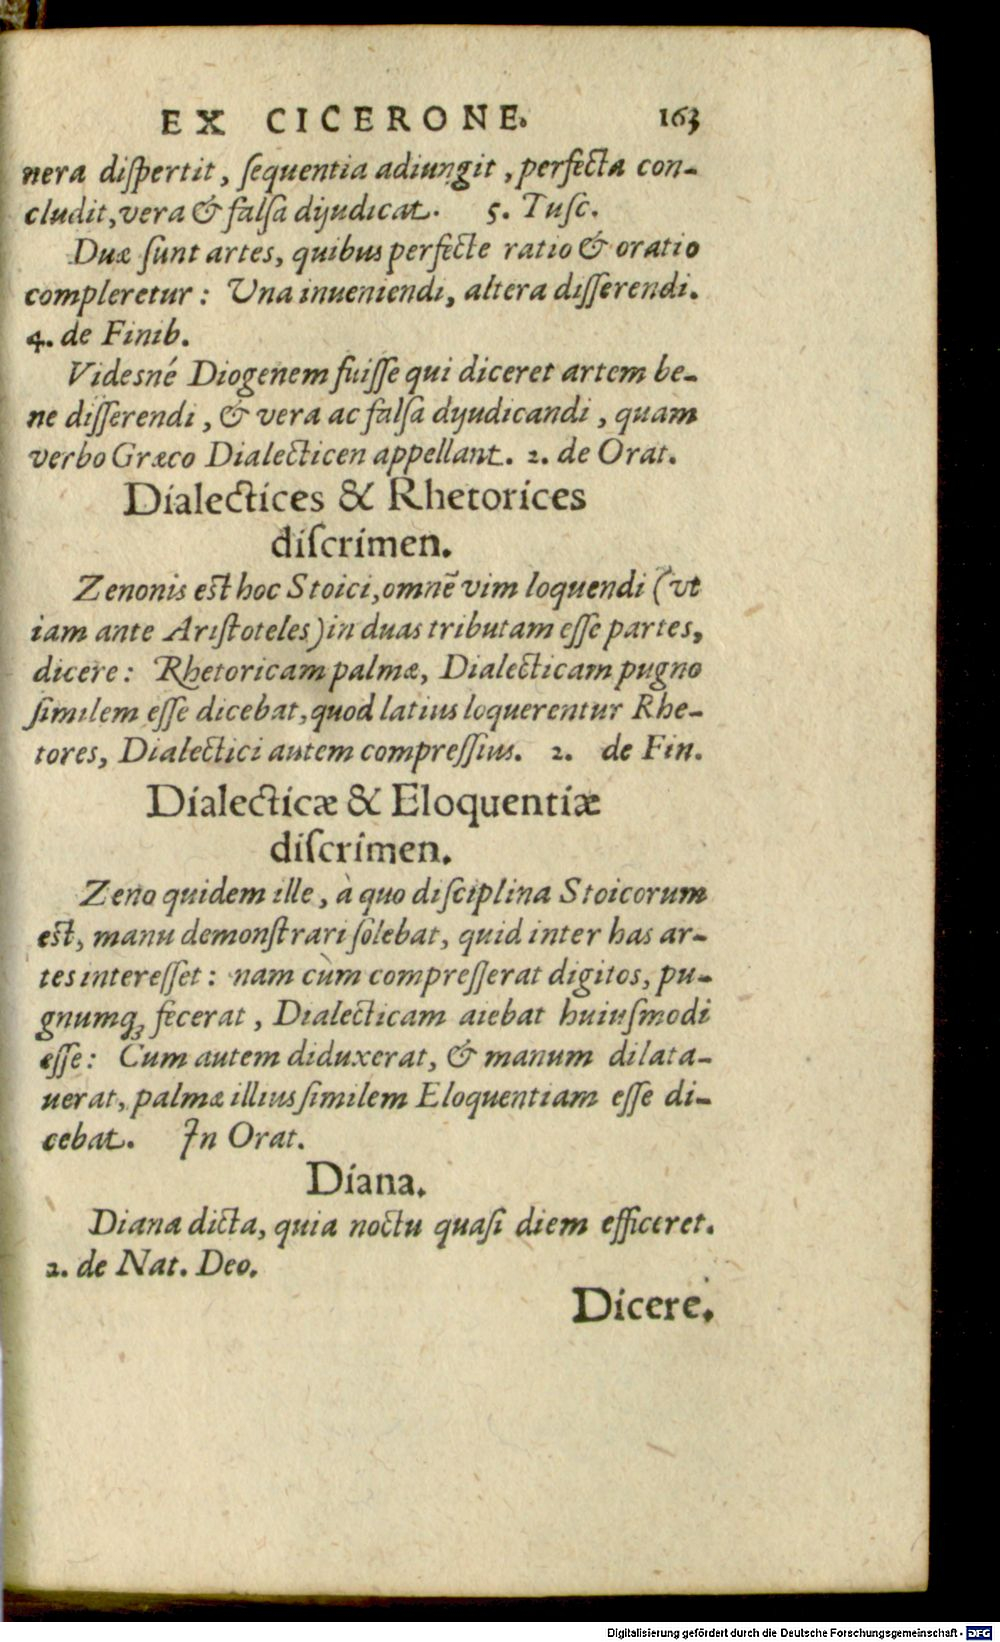 EX CICERONE. 163
nera diſpertit, ſequentia adiungit, perfecta con-
cludit, vera & falſa dijudicat. 5. Tuſc.
Duæ ſunt artes, quibus perfecte ratio & oratio
compleretur: Una inueniendi, altera diſſerendi.
4. de Finib.
Videsné Diogenem fuiſſe qui diceret artem be-
ne diſſerendi, & vera ac falſa dijudicandi, quam
verbo Græco Dialecticen appellant. 2. de Orat.
Dialectices & Rhetorices
diſcrimen.
Zenonis est hoc Stoici, omnē vim loquendi (vt
iam ante Ariſtoteles) in duas tributam eſſe partes,
dicere: Rhetoricam palmæ, Dialecticam pugno
ſimilem eſſe dicebat, quod latius loquerentur Rhe-
tores, Dialectici autem compreſſius. 2. de Fin.
Dialecticæ & Eloquentiæ
diſcrimen.
Zeno quidem ille, à quo diſciplina Stoicorum
est, manu demonſtrari ſolebat, quid inter has ar-
tes intereſſet: nam cùm compreſſerat digitos, pu-
gnumq; fecerat, Dialecticam aiebat huiuſmodi
eſſe: Cum autem diduxerat, & manum dilata-
uerat, palmæ illius ſimilem Eloquentiam eſſe di-
cebat. In Orat.
Diana.
Diana dicta, quia noctu quaſi diem efficeret.
2. de Nat. Deo.
Dicere.
Digitalisierung gefördert durch die Deutsche Forschungsgemeinschaft - DFG